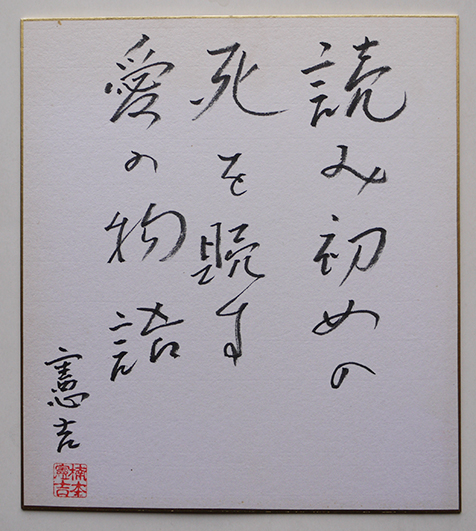 読み初めの
死を贖す
愛の物語
憲吉
楠本
憲吉